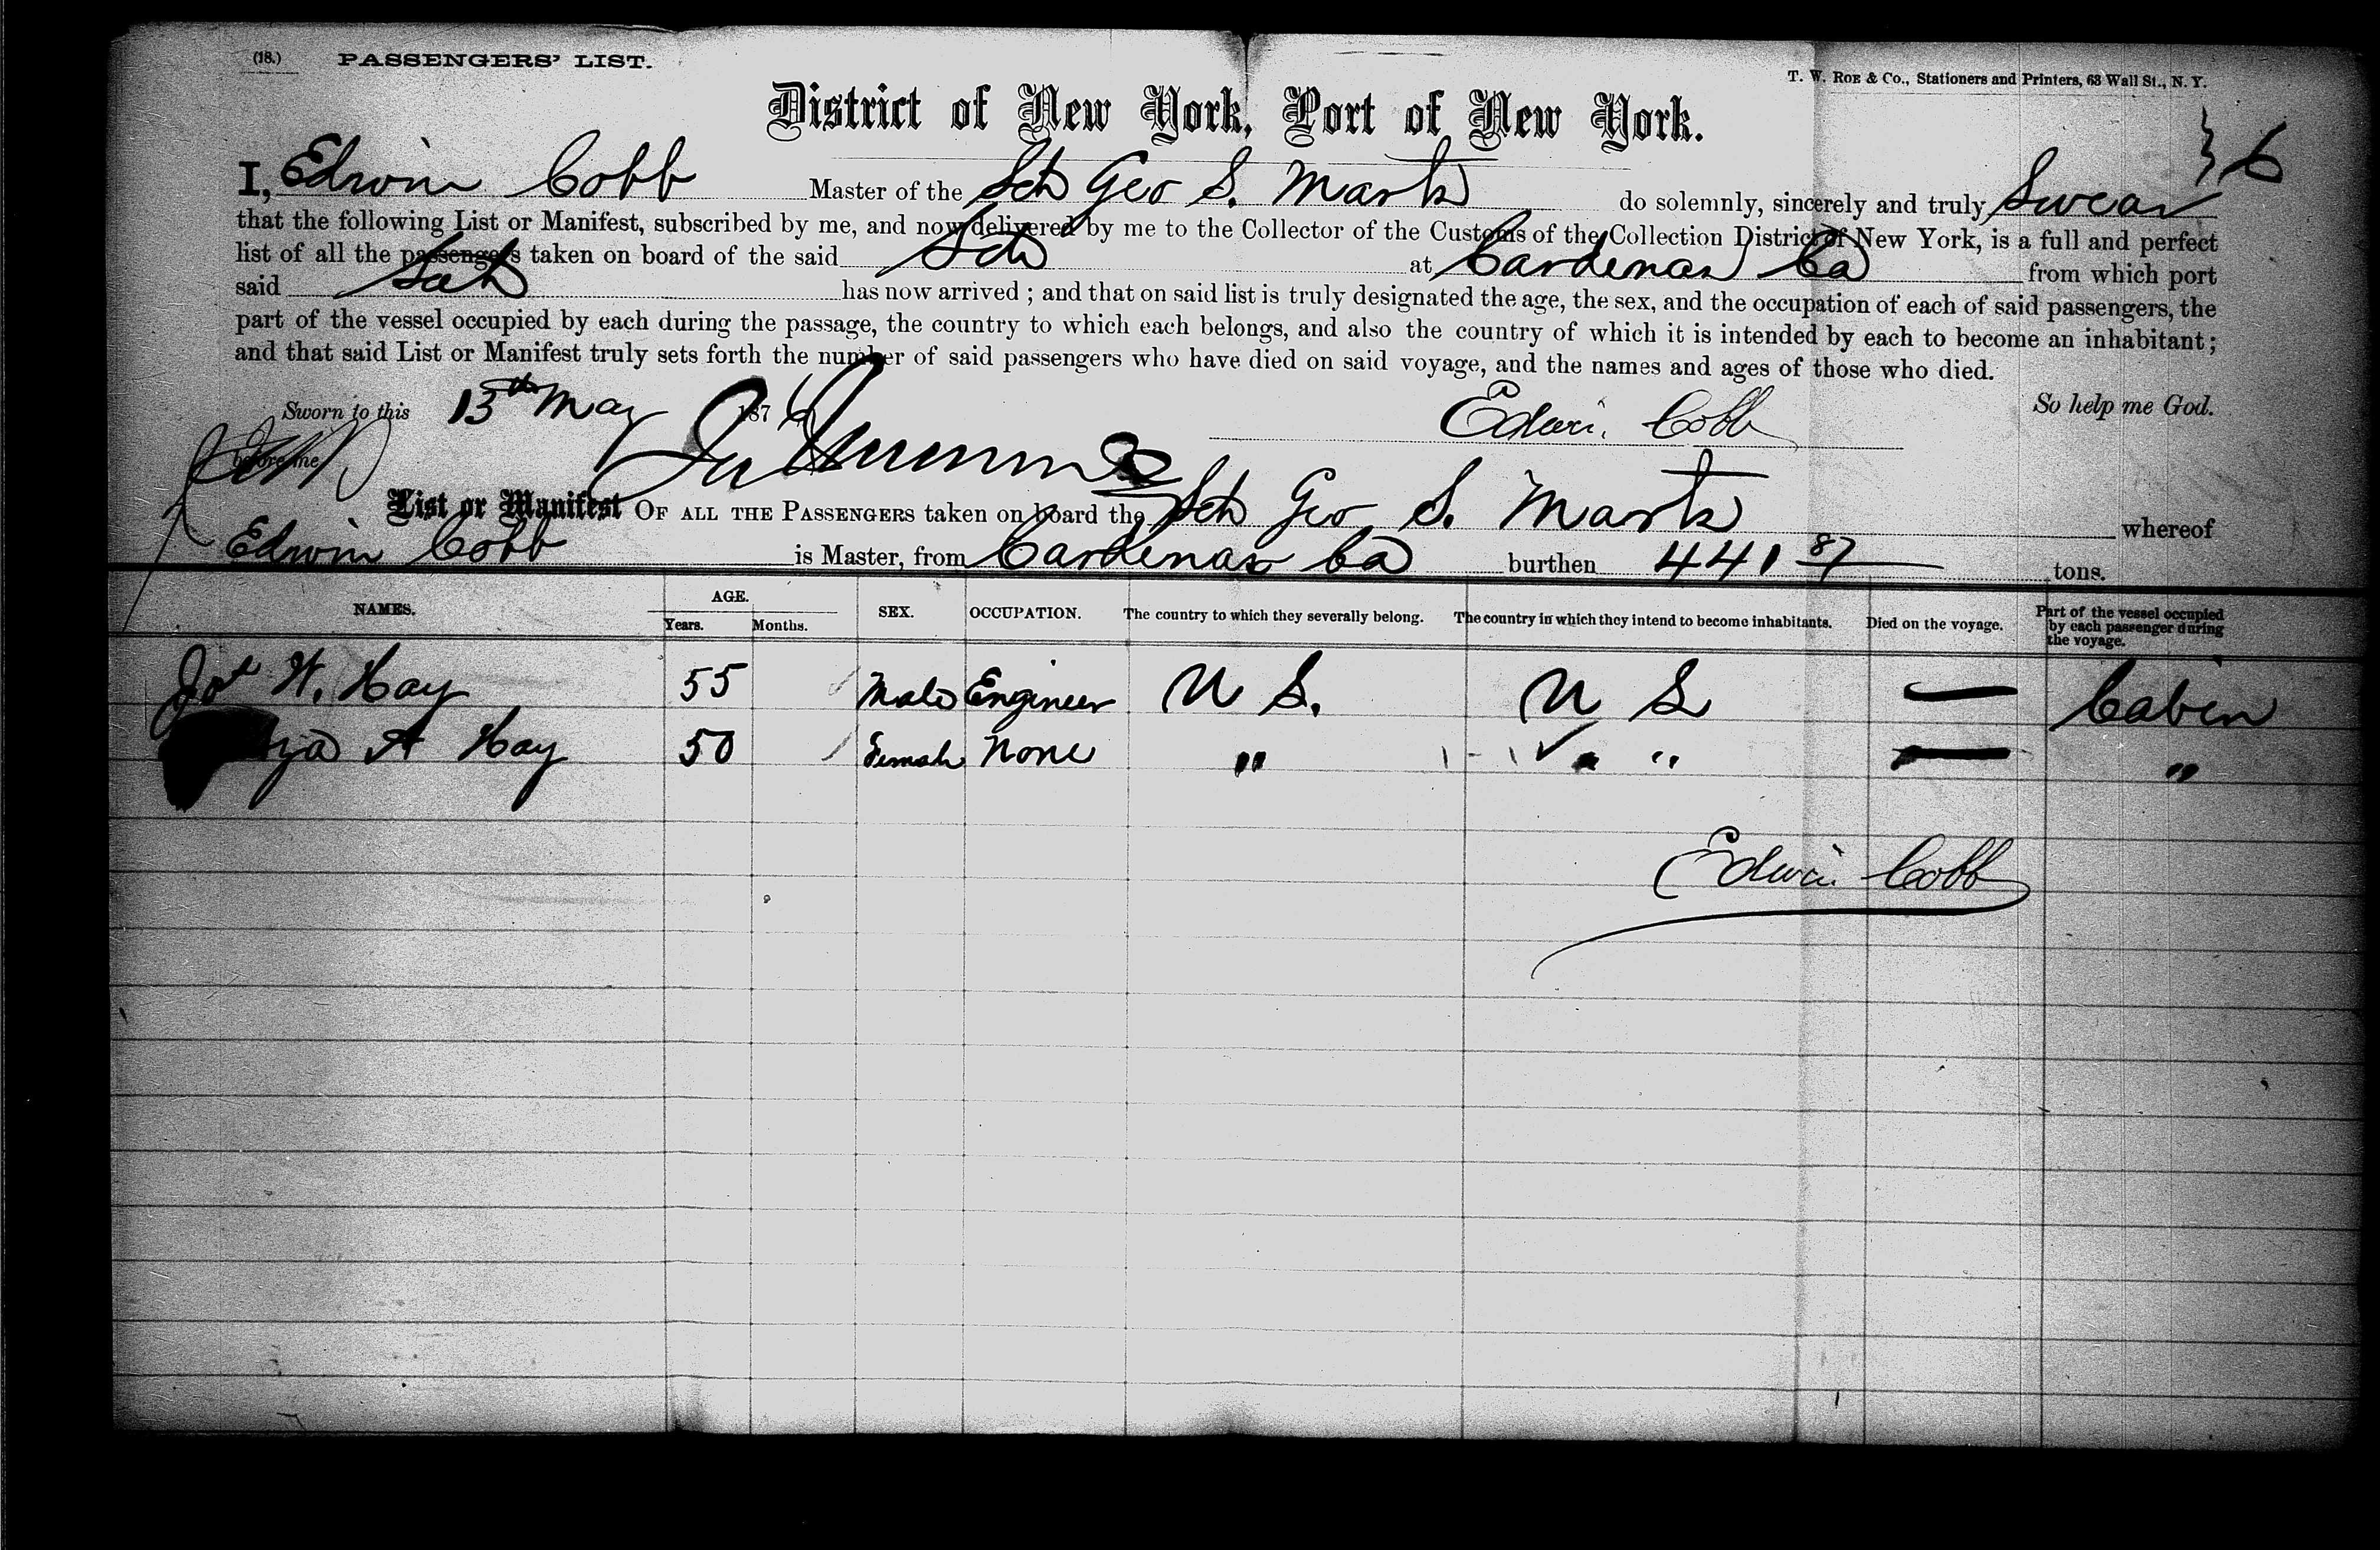 (18.) PASSENGERS' LIST.
T. W. ROE & Co., Stationers and Printers, 63 Wall St., N. Y.
District of New York, Port of New York.
6
I, Edwin Cobb Master of the Sch Geo S. Marts do solemnly, sincerely and truly Swear
that the following List or Manifest, subscribed by me, and now delivered by me to the Collector of the Customs of the Collection District of New York, is a full and perfect
list of all the passengers taken on board of the said Sch at Cardenas Ca from which port
said Sch has now arrived ; and that on said list is truly designated the age, the sex, and the occupation of each of said passengers, the
part of the vessel occupied by each during the passage, the country to which each belongs, and also the country of which it is intended by each to become an inhabitant ;
and that said List or Manifest truly sets forth the number of said passengers who have died on said voyage, and the names and ages of those who died.
Sworn to this 13th May 187 Edwin Cobb So help me God.
before me
List or Manifest OF ALL THE PASSENGERS taken on board the Sch Geo. S. Marts whereof
Edwin Cobb is Master, from Cardenas Ca burthen 441 87 tons.
NAMES. AGE. Years. Months. SEX. OCCUPATION. The country to which they severally belong. The country in which they intend to become inhabitants. Died on the voyage. Part of the vessel occupied by each passenger during the voyage.
W. Hay 55 Male Engineer U S. U S — Cabin
A Hay 50 Female None " " " — "
Edwin Cobb